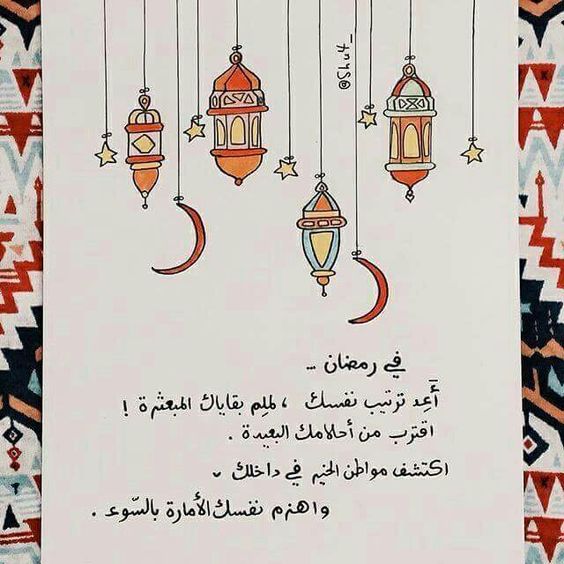 @Shut_
في رمضان ..
أَعِد ترتيب نفسك ، لملم بقاياك المبعثرة !
اقترب من أحلامك البعيدة .
اكتشف مواطن الخير في داخلك
واهزم نفسك الأمارة بالسّوء .